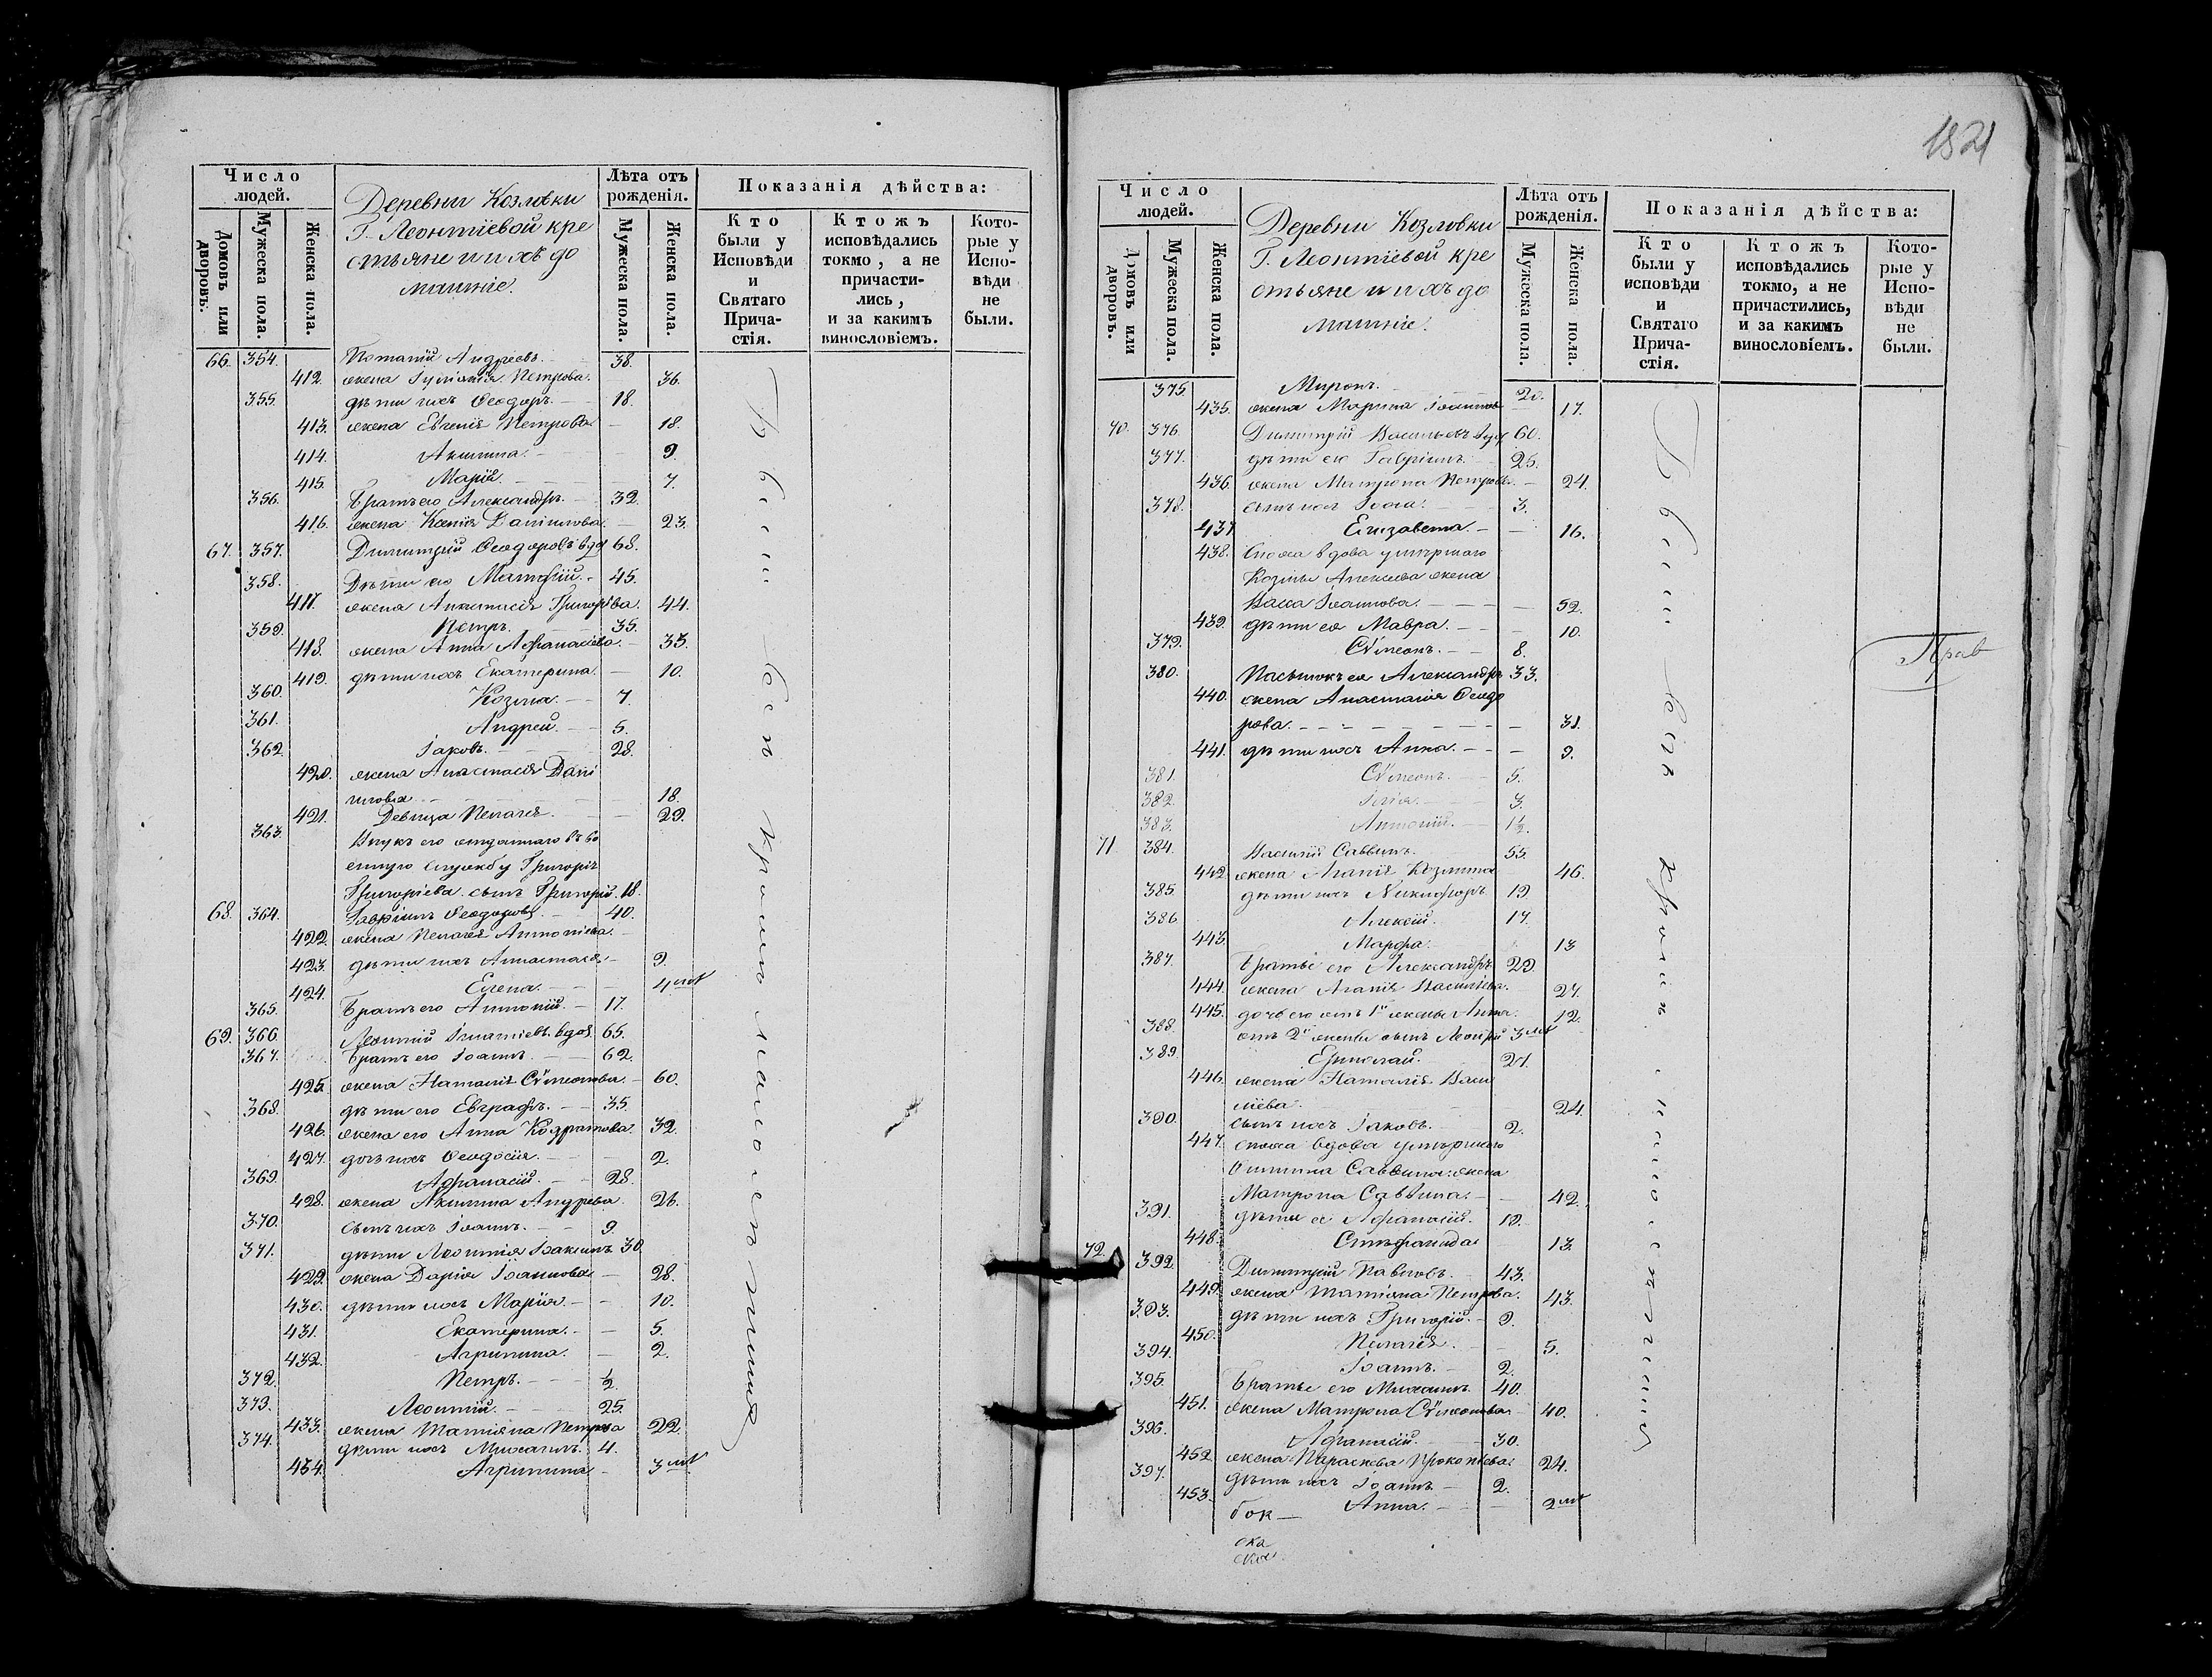 Число людей.
Домовъ или дворовъ.
Мужеска пола.
Женска пола.
Деревни Козловки
Г. Леонтіевой кре
стьяне и ихъ до
машніе.
Лѣта отъ рожденія.
Мужеска пола.
Женска пола.
Показанія дѣйства:
Кто были у Исповѣди и Святаго Прича-стія.
Ктожъ исповѣдались токмо, а не причасти-лись, и за какимъ винословіемъ.
Кото-рые у Испо-вѣди не были.
66. 354. Потапій Андреевъ. 38.
412. жена Гуліанія Петрова. 36.
355. дѣти ихъ Ѳеодоръ. 18.
413. жена Евгенія Петрова 18.
414. Акилина. 9.
415. Марія. 7.
356. Братъ его Александръ. 32.
416. жена Ксенія Даніилова. 23.
67. 357. Димитрій Ѳеодоровъ вдов 68.
358. Дѣти его Матѳій. 45.
417. жена Анастасія Григорьева. 44.
359. Петръ. 35.
418. жена Анна Аѳанасіева. 35.
419. дѣти ихъ Екатерина. 10.
360. Козма. 7.
361. Андрей. 5.
362. Іаковъ. 28.
420. жена Анастасія Дані
илова 18.
421. Девица Пелагея. 29.
363. Внукъ его отданнаго въ во
енную службу Григорія
Григоріева сынъ Григорій. 18.
68. 364. Гавріилъ Ѳеодоровъ 40.
422. жена Пелагея Антоніева.
423. дѣти ихъ Анастасія 9.
424. Елена. 4 мѣс
365. Братъ его Антоній. 17.
69. 366. Леонтій Игнатіевъ вдов. 65.
367. братъ его Іоаннъ. 62.
425. жена Наталія Сѵмеонова. 60.
368. дѣти его Евграфъ. 35.
426. жена его Анна Кодратова. 32.
427. дочь ихъ Ѳеодосія. 2.
369. Аѳанасій. 28.
428. жена Акилина Андреева. 26.
370. сынъ ихъ Іоаннъ. 9.
371. дѣти Леонтія Іоакимъ 30.
429. жена Дарія Іоаннова 28.
430. дѣти ихъ Марія. 10.
431. Екатерина. 5.
432. Агрипина. 2.
372. Петръ. ½.
373. Леонтій. 25.
433. жена Татіана Петрова 22.
374. дѣти ихъ Михаилъ. 4.
434. Агрипина 3 мѣс
Число людей.
Домовъ или дворовъ.
Мужеска пола.
Женска пола.
Деревни Козловки
Г. Леонтіевой кре
стьяне и ихъ до
машніе.
Лѣта отъ рожденія.
Мужеска пола.
Женска пола.
Показанія дѣйства:
Кто были у исповѣди и Святаго Прича-стія.
Ктожъ исповѣдались токмо, а не причастились, и за какимъ винословіемъ.
Кото-рые у Испо-вѣди не были.
375. Миронъ. 20.
435. жена Марина Іоаннова 17.
70. 376. Димитрій Васильевъ вдов 60.
377. дѣти его Гавріилъ. 25.
436. жена Матрона Петрова. 24.
378. сынъ ихъ 3.
437 Елизавета. 16.
438. Сноха вдова умершаго
Козмы Алексіева жена
Васса Іоаннова. 52.
439. дѣти ея Мавра. 10.
379. Сѵмеонъ. 8.
380. Пасынокъ ея Александръ 33.
440. жена Анастасія Ѳеодо
рова. 31.
441. дѣти ихъ Анна. 9.
381. Сѵмеонъ. 5.
382. Илія. 3.
383. Антоній. 1½.
71. 384. Василій Саввинъ. 55.
442 жена Агапія Козмина 46.
385. дѣти ихъ Никифоръ 19.
386 Алексій. 17.
443. Марѳа. 13
387. Братъ его Александръ 29.
444. жена Агапія Василіева. 27.
445. дочь его отъ 1й жены Анна. 12.
388. отъ 2й жены сынъ 3 мѣс
389. Ермолай. 21.
446. жена Наталія Васи
ліева. 24.
390. сынъ ихъ Іаковъ. 2.
447. сноха вдова умершаго
Саввина жена
Матрона Саввина. 42.
391. дѣти ея Аѳанасій. 19.
448. Стефанида 13.
72. 392. Димитрій Павловъ. 43.
449. жена Татіана Петрова. 43.
393. дѣти ихъ Григорій. 9.
450. Пелагія. 5.
394. Іоаннъ. 2.
395. Братъ его Михаилъ. 40.
451. жена Матрона Сѵмеонова 40.
396. Аѳанасій. 30.
452. жена Параскева Прокопіева 24.
397. дѣти ихъ Іоаннъ 2.
453. Анна. 2 мѣс
бок
ска
ской
Прав